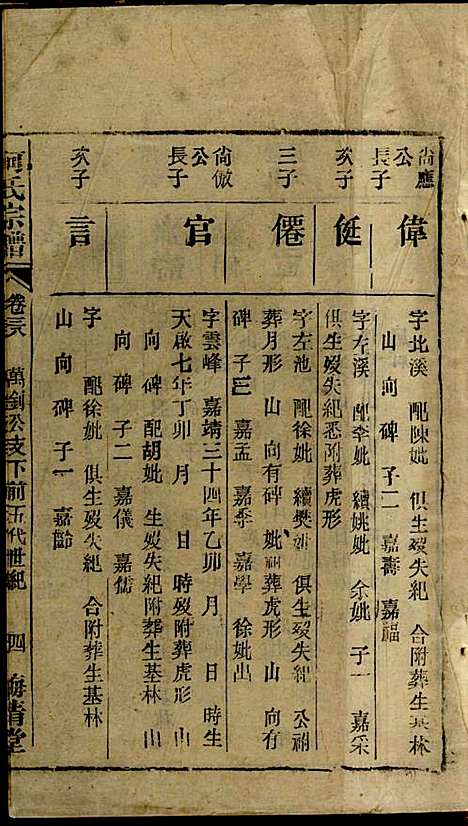 尙應公長子
偉
字北溪 配陳妣 俱生歿失紀 合附葬生基林
山 向碑 子二 嘉壽 嘉福
次子
侹
字左溪 配李妣 續姚妣 余妣 子一 嘉采
俱生歿失紀悉附葬虎形
三子
僊
字左池 配徐妣 續樊妣 俱生歿失紀 公祔
葬月形 山 向有碑 妣祔葬虎形 山 向有
碑 子三 嘉孟 嘉季 嘉學 徐妣出
尙倣公長子
官
字雲峰 嘉靖三十四年乙卯 月 日 時生
天啟七年丁卯 月 日 時歿附葬虎形 山
向 碑 配胡妣 生歿失紀附葬生基林 山
向 碑 子二 嘉儀 嘉儒
次子
言
字 配徐妣 俱生歿失紀 合附葬生基林
山 向碑 子一 嘉齡
何氏宗譜 卷三八 萬釗公支下前五代世紀 四 清堂